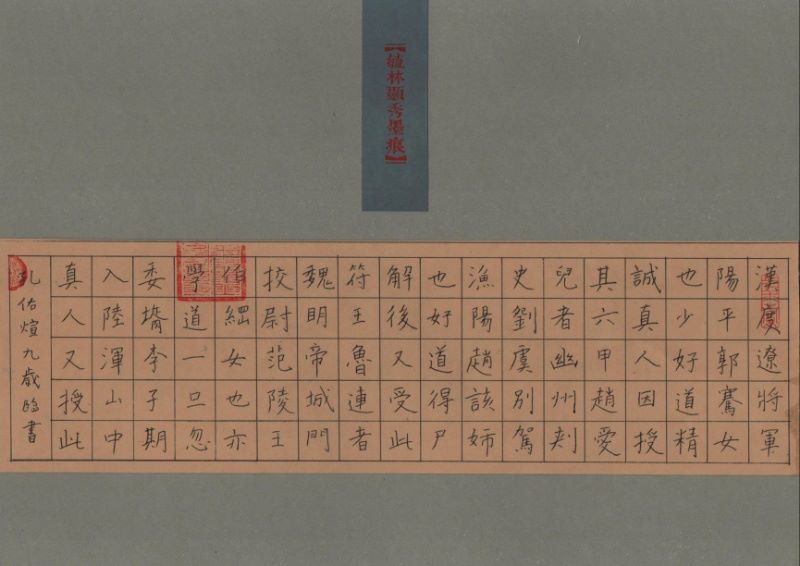 【毓林顯秀墨痕】
漢度遼將軍
陽平郭騫女
也少好道精
誠真人因授
其六甲趙愛
兒者幽州刾
史劉虞別駕
漁陽趙該姉
也好道得尸
解後又受此
符王魯連者
魏明帝城門
挍尉范陵王
伯綱女也亦
學道一旦忽
委壻李子期
入陸渾山中
真人又授此
孔佑煊九歲臨書